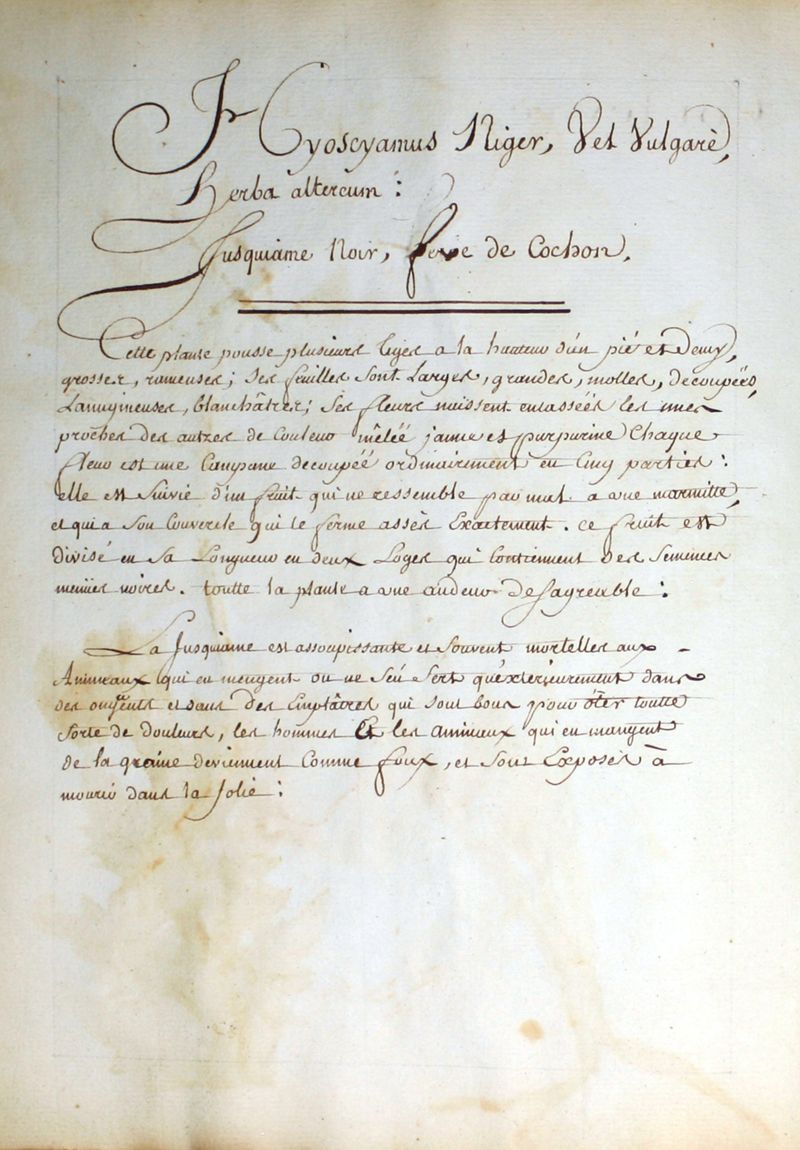 Hyoscyamus Niger, Vel Vulgarè,
Herba altercum :
Jusquiame Noir, feve de Cochon,
Cette plante pousse plusieurs tiges a la hauteur d'un pié et Demy,
grosses, rameuses; Ses feuilles sont Larges, grandes, molles, découpéés,
Lanugineuses, blanchâtres; Ses fleurs naissent entasséés les unes
proches des autres de Couleur mêléé jaune et purpurine Chaque
fleur est une Campane decoupéé ordinairement en Cinq parties :
elle est Suivie d'un fruit qui ne ressemble pas mal a une marmitte,
et qui a son Couvercle qui le ferme assès Exactement. ce fruit est
divisé en sa Longueur en deux Loges qui Contiennent des Semences
menues noires. toutte la plante a une audeur Desagreable :
La Jusquiame est assoupissante et Souvent mortelles aux -
Animeaux qui en mengent on ne S'en Sert qu'éxterieurement dans
des onguents et dans des Emplâtres qui sont bons pour ôter toutte
Sorte de douleurs, les hommes Et les Animaux qui en mangent
de la graine deviennent Comme foux, et sont Exposés à
mourir dans la folie :